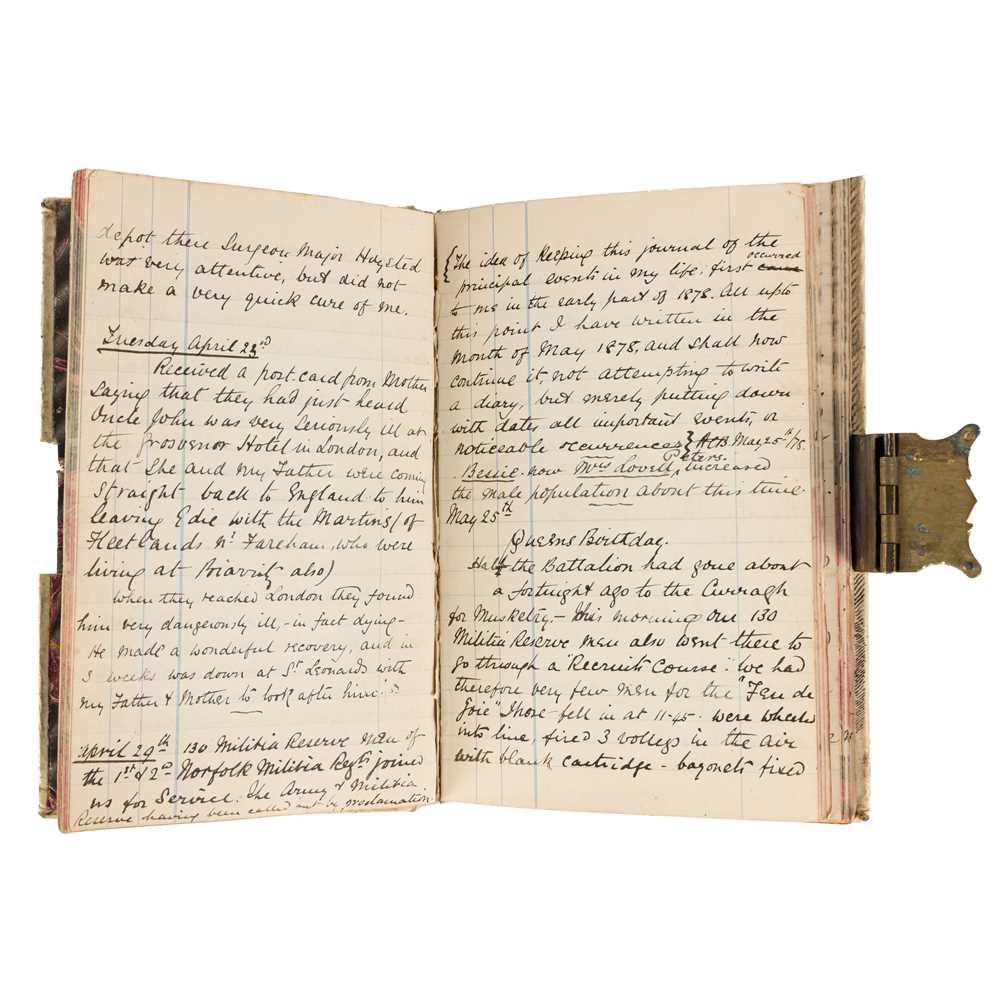 depot there Surgeon Major Hoysted
was very attentive, but did not
make a very quick cure of me.
Tuesday April 23rd
Received a post.card from Mother
saying that they had just heard
Uncle John was very seriously ill at
the Grosvenor Hotel in London, and
that She and my Father were coming
straight back to England to him
leaving Edie with the Martins (of
Fleetlands nr. Fareham, who were
living at Biarritz also)
When they reached London they found
him very dangerously ill, - in fact dying -
He made a wonderful recovery, and in
3 weeks was down at St Leonards with
my Father & Mother to look after him.
April 29th 130 Militia Reserve men of
the 1st & 2nd Norfolk Militia Regts joined
us for Service. The Army & Militia
Reserve having been called out by proclamation
{The idea of keeping this journal of the
principal events in my life, first occurred
to me in the early part of 1878. All upto
this point I have written in the
month of May 1878, and shall now
continue it, not attempting to write
a diary, but merely putting down
with dates all important events, or
noticeable occurrences} May 25th/78.
Bessie now Mrs Lovell Peters, increased
the male population about this time
May 25th
Queens Birthday.
Half the Battalion had gone about
a fortnight ago to the Curragh
for Musketry. - This morning our 130
Militia Reserve men also went there to
go through a "Recruits Course". We had
therefore very few men for the "Feu de
Joie" Those fell in at 11-45. were wheeled
into line, fired 3 volleys in the air
with blank cartridge - bayonets fixed